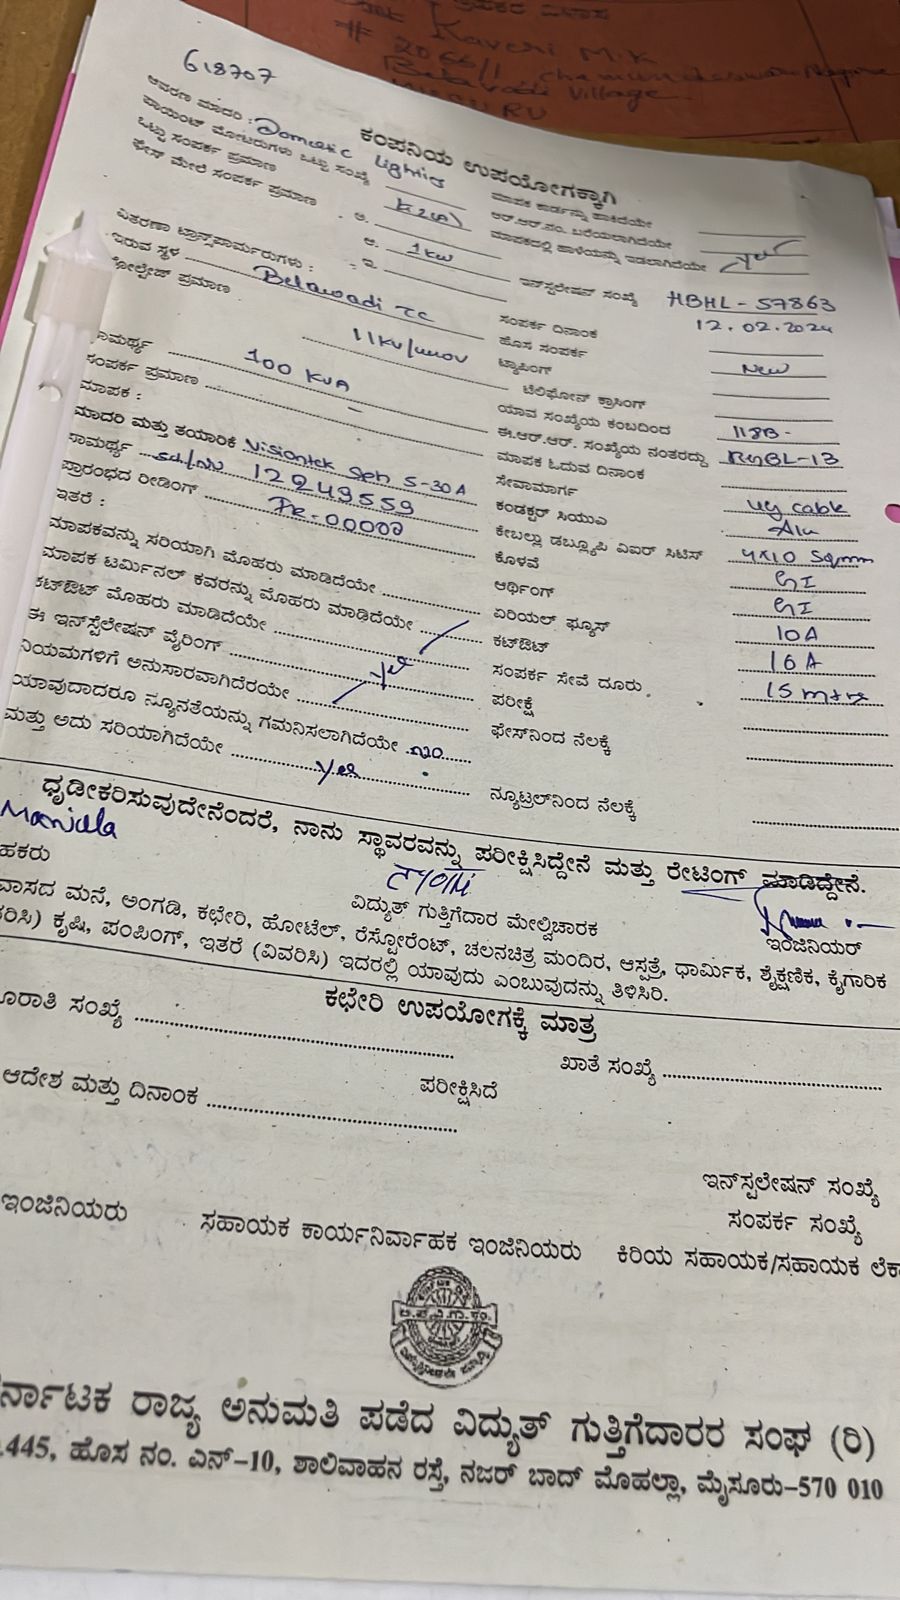 Kaveri M.K
# 2066/1
Belavadi Village
618707
ಕಂಪನಿಯ ಉಪಯೋಗಕ್ಕಾಗಿ
ಆವರಣ ಮಾದರಿ : Domestic Lighting
ಪಾಯಿಂಟ್ ಮೋಟರುಗಳು ಒಟ್ಟು ಸಂಖ್ಯೆ
ಒಟ್ಟು ಸಂಪರ್ಕ ಪ್ರಮಾಣ
ಫೇಸ್ ಮೇಲೆ ಸಂಪರ್ಕ ಪ್ರಮಾಣ ಅ. 1kw
ಆ.
ಇ.
ವಿತರಣಾ ಟ್ರಾನ್ಸ್‌ಫಾರ್ಮರುಗಳು :
ಇರುವ ಸ್ಥಳ Belawadi TC
ವೋಲ್ಟೇಜ್ ಪ್ರಮಾಣ
ಸಾಮರ್ಥ್ಯ 100 KVA
ಸಂಪರ್ಕ ಪ್ರಮಾಣ –
ಮಾಪಕ :
ಮಾದರಿ ಮತ್ತು ತಯಾರಿಕೆ Visiontek 5-30A
ಸಾಮರ್ಥ್ಯ 12949559
ಪ್ರಾರಂಭದ ರೀಡಿಂಗ್
ಇತರೆ :
ಮಾಪಕವನ್ನು ಸರಿಯಾಗಿ ಮೊಹರು ಮಾಡಿದೆಯೇ
ಮಾಪಕ ಟರ್ಮಿನಲ್ ಕವರನ್ನು ಮೊಹರು ಮಾಡಿದೆಯೇ
ಕಟ್‌ಔಟ್ ಮೊಹರು ಮಾಡಿದೆಯೇ
ಈ ಇನ್‌ಸ್ಟಲೇಷನ್ ವೈರಿಂಗ್
ನಿಯಮಗಳಿಗೆ ಅನುಸಾರವಾಗಿದೆರಯೇ yes
ಯಾವುದಾದರೂ ನ್ಯೂನತೆಯನ್ನು ಗಮನಿಸಲಾಗಿದೆಯೇ no
ಮತ್ತು ಅದು ಸರಿಯಾಗಿದೆಯೇ yes
ಮಾಪಕ ಕಾರ್ಡನ್ನು ಹಾಕಿದೆಯೇ
ಆರ್.ಆರ್.ನಂ. ಬರೆಯಲಾಗಿದೆಯೇ
ಮಾಪಕದಲ್ಲಿ ಹಾಳೆಯನ್ನು ಇಡಲಾಗಿದೆಯೇ yes
ಇನ್‌ಸ್ಟಲೇಷನ್ ಸಂಖ್ಯೆ HBHL - 57863
ಸಂಪರ್ಕ ದಿನಾಂಕ 12.02.2024
ಹೊಸ ಸಂಪರ್ಕ
ಟ್ಯಾಪಿಂಗ್ New
ಟೆಲಿಫೋನ್ ಕ್ರಾಸಿಂಗ್
ಯಾವ ಸಂಖ್ಯೆಯ ಕಂಬದಿಂದ
ಈ.ಆರ್.ಆರ್. ಸಂಖ್ಯೆಯ ನಂತರದ್ದು
ಮಾಪಕ ಓದುವ ದಿನಾಂಕ
ಸೇವಾಮಾರ್ಗ ug cable
ಕಂಡಕ್ಟರ್ ಸಿಯುಎ Alu
ಕೇಬಲ್ಲು ಡಬ್ಲ್ಯೂಪಿ ವಿಐರ್ ಸಿಟಿಸ್ 4x10 Sqmm
ಕೊಳವೆ GI
ಆರ್ಥಿಂಗ್ GI
ಏರಿಯಲ್ ಫ್ಯೂಸ್ 10A
ಕಟ್‌ಔಟ್ 16A
ಸಂಪರ್ಕ ಸೇವೆ ದೂರು 15 mtrs
ಪರೀಕ್ಷೆ
ಫೇಸ್‌ನಿಂದ ನೆಲಕ್ಕೆ
ನ್ಯೂಟ್ರಲ್‌ನಿಂದ ನೆಲಕ್ಕೆ
ಧೃಡೀಕರಿಸುವುದೇನೆಂದರೆ, ನಾನು ಸ್ಥಾವರವನ್ನು ಪರೀಕ್ಷಿಸಿದ್ದೇನೆ ಮತ್ತು ರೇಟಿಂಗ್ ಮಾಡಿದ್ದೇನೆ.
Manjula
ಹಕರು
ವಿದ್ಯುತ್ ಗುತ್ತಿಗೆದಾರ ಮೇಲ್ವಿಚಾರಕ
ಇಂಜಿನಿಯರ್
ವಾಸದ ಮನೆ, ಅಂಗಡಿ, ಕಛೇರಿ, ಹೋಟೆಲ್, ರೆಸ್ಟೋರೆಂಟ್, ಚಲನಚಿತ್ರ ಮಂದಿರ, ಆಸ್ಪತ್ರೆ, ಧಾರ್ಮಿಕ, ಶೈಕ್ಷಣಿಕ, ಕೈಗಾರಿಕ
ರಿಸಿ) ಕೃಷಿ, ಪಂಪಿಂಗ್, ಇತರೆ (ವಿವರಿಸಿ) ಇದರಲ್ಲಿ ಯಾವುದು ಎಂಬುವುದನ್ನು ತಿಳಿಸಿರಿ.
ಕಛೇರಿ ಉಪಯೋಗಕ್ಕೆ ಮಾತ್ರ
ರಾತಿ ಸಂಖ್ಯೆ
ಖಾತೆ ಸಂಖ್ಯೆ
ಆದೇಶ ಮತ್ತು ದಿನಾಂಕ
ಪರೀಕ್ಷಿಸಿದೆ
ಇನ್‌ಸ್ಪಲೇಷನ್ ಸಂಖ್ಯೆ
ಸಂಪರ್ಕ ಸಂಖ್ಯೆ
ಇಂಜಿನಿಯರು ಸಹಾಯಕ ಕಾರ್ಯನಿರ್ವಾಹಕ ಇಂಜಿನಿಯರು ಕಿರಿಯ ಸಹಾಯಕ/ಸಹಾಯಕ ಲೆಕ್ಕ
ರ್ನಾಟಕ ರಾಜ್ಯ ಅನುಮತಿ ಪಡೆದ ವಿದ್ಯುತ್ ಗುತ್ತಿಗೆದಾರರ ಸಂಘ (ರಿ)
.445, ಹೊಸ ನಂ. ಎನ್-10, ಶಾಲಿವಾಹನ ರಸ್ತೆ, ನಜರ್ ಬಾದ್ ಮೊಹಲ್ಲಾ, ಮೈಸೂರು-570 010